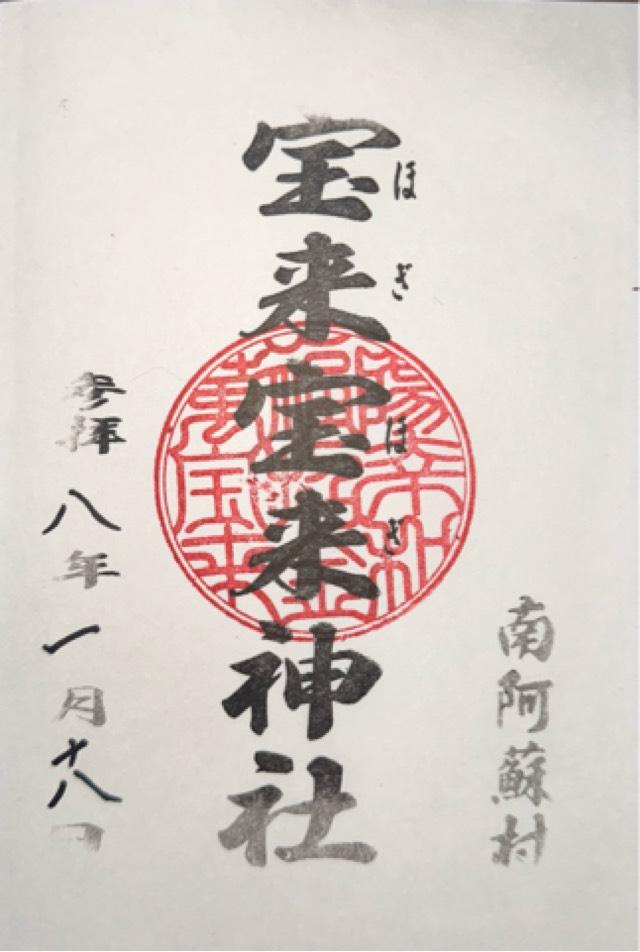 南阿蘇村
宝来宝来神社
ほぎ ほぎ
参拝 八年 一月 十八日